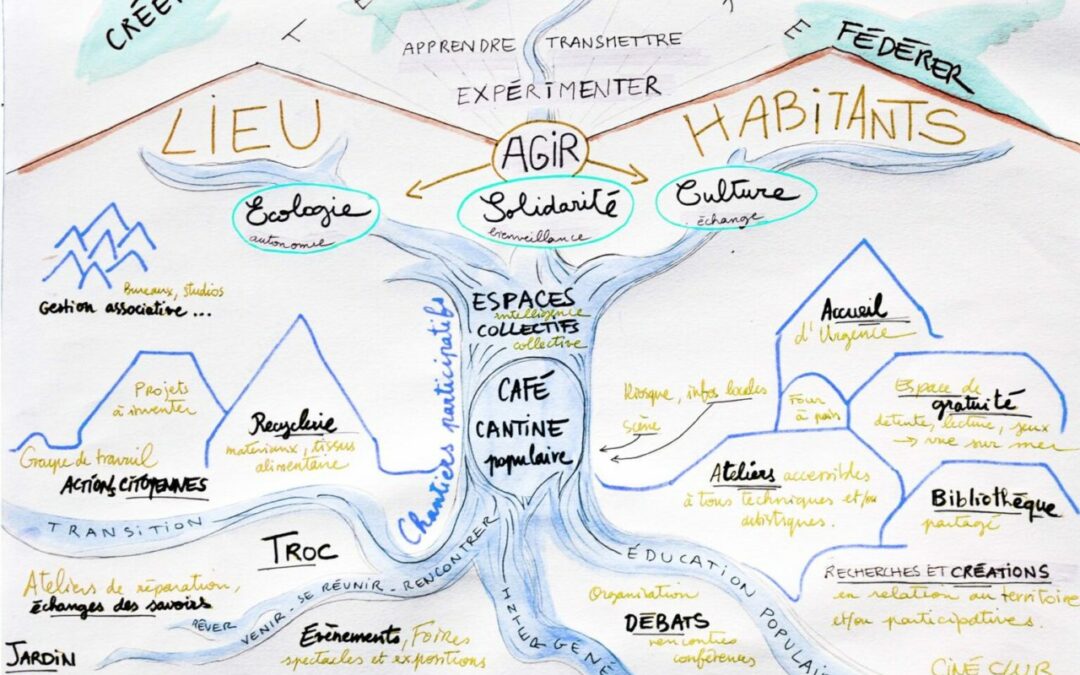 CRÉE
T
E
FÉDÉRER
APPRENDRE TRANSMETTRE
EXPÉRIMENTER
LIEU
HABITANTS
AGIR
Ecologie
autonomie
Solidarité
bienveillance
Culture
échange
Bureaux, studios
Gestion associative ...
ESPACES
intelligence
COLLECTIFS
collective
Chantiers participatifs
CAFÉ
CANTINE
populaire
Projets
à inventer
Recyclerie
matériaux, tissus
alimentaire
Groupe de travail
ACTIONS CITOYENNES
Accueil
d'Urgence
Kiosque, infos locales
Scène
Four
à pain
Espace de
gratuité
détente, lecture, jeux
→ vue sur mer
Ateliers accessibles
à tous techniques et/ou
artistiques.
Bibliothèque
partagé
TRANSITION
TROC
Ateliers de réparation,
échanges des savoirs
RÊVER VENIR - SE RÉUNIR - RENCONTRER
JARDIN
Evènements, Foires
spectacles et expositions
INTERGÉNÉ
ÉDUCATION POPULAI
Organisation
DÉBATS
rencontres
conférences
RECHERCHES ET CRÉATIONS
en relation au territoire
et/ou participatives.
CINÉ CLUB